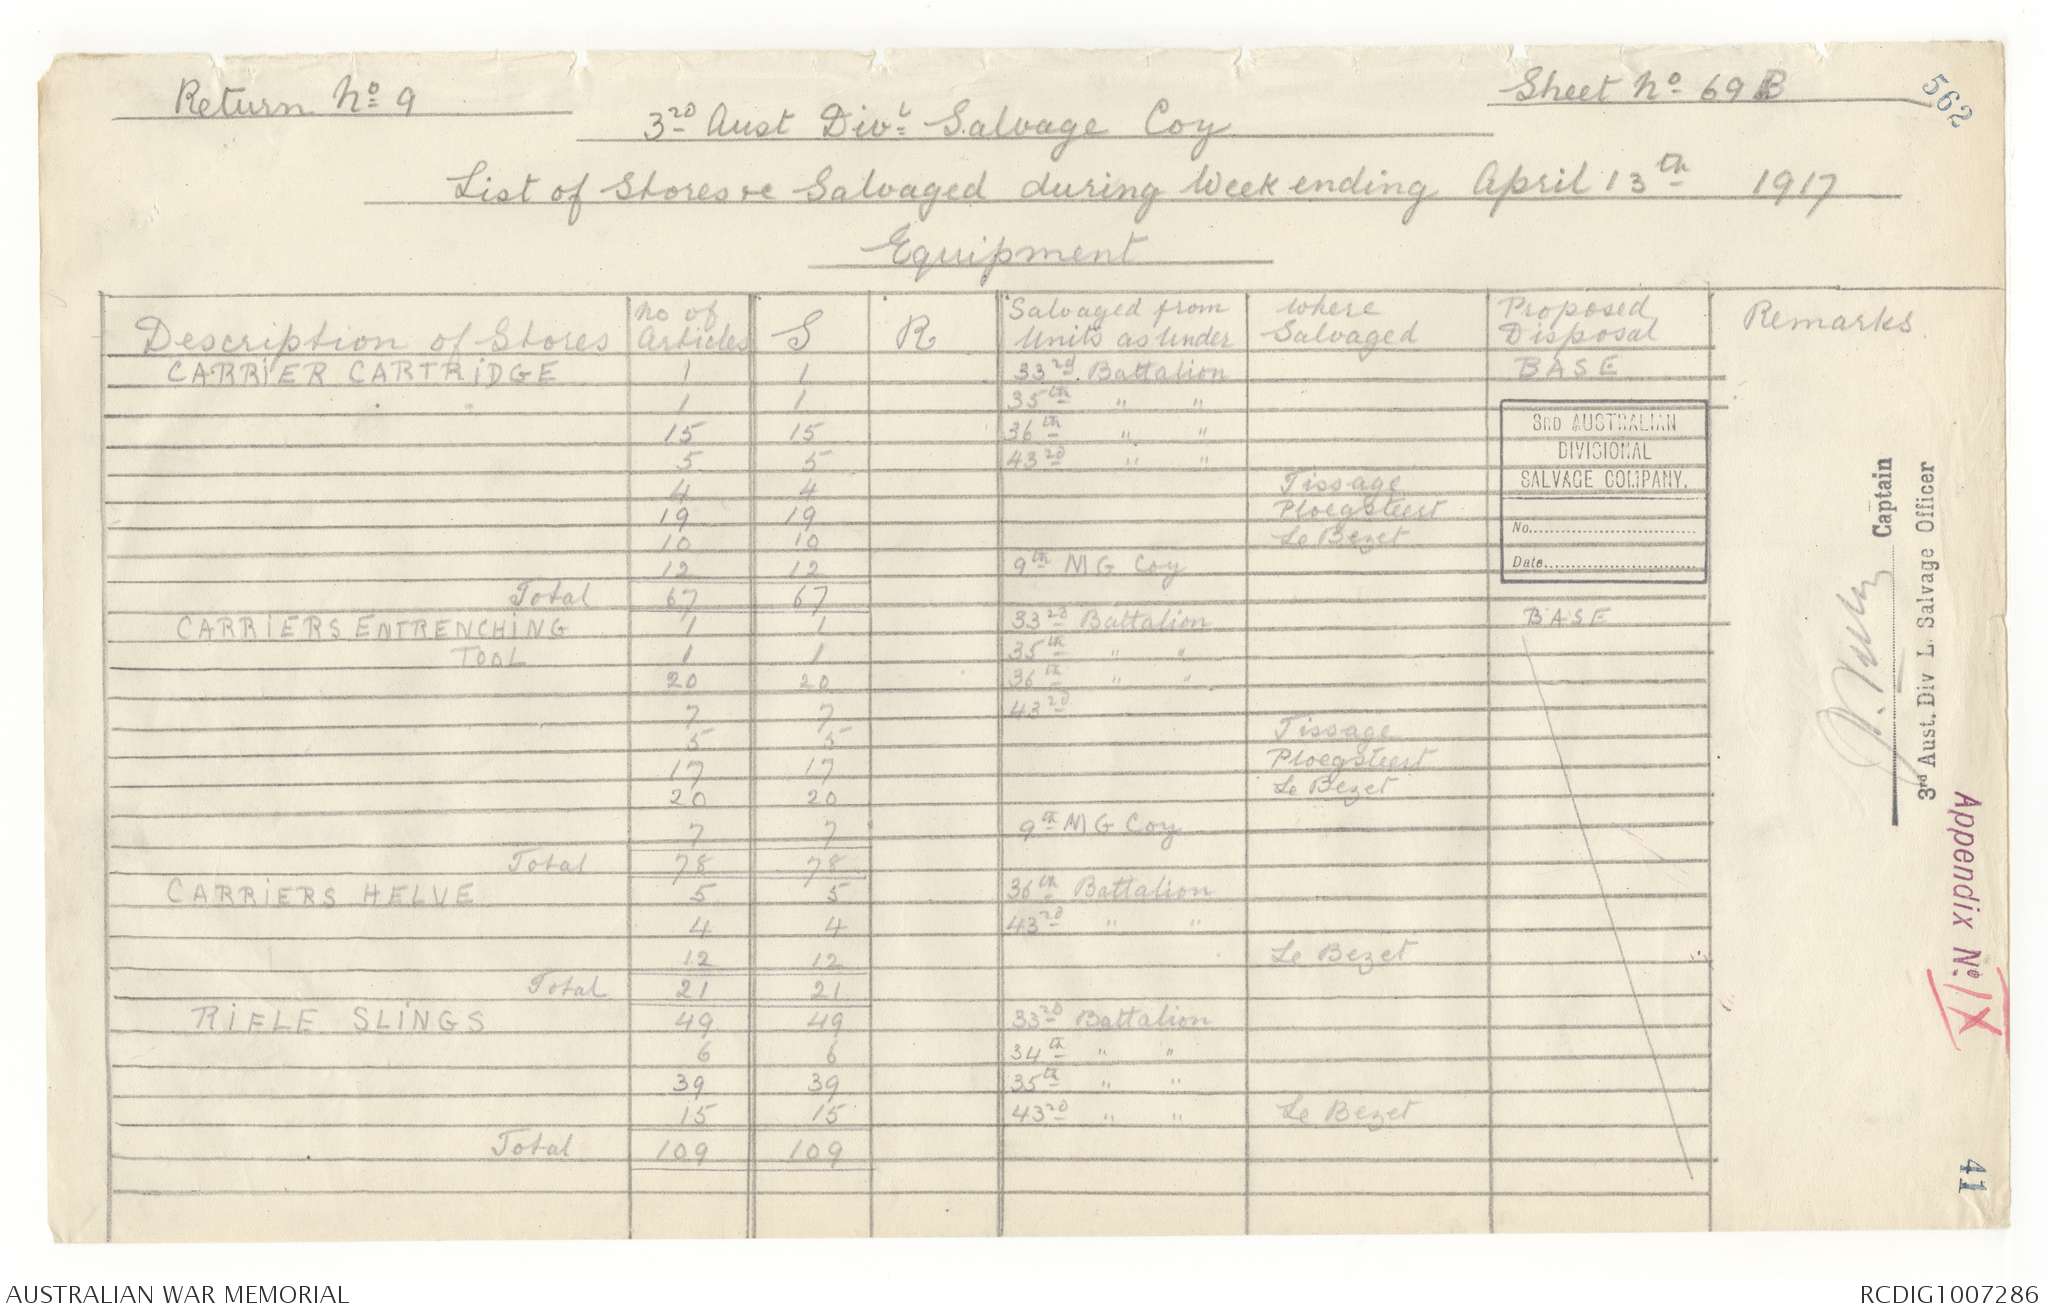 Return No 9
Sheet No 69B
562
3rd Aust Divl Salvage Coy
List of Stores re Salvaged during Week ending April 13th 1917
Equipment
Description of Stores | No of Articles | S | R | Salvaged from Units as Under | Where Salvaged | Proposed Disposal | Remarks
CARRIER CARTRIDGE 1 1 33rd Battalion BASE
1 1 35th " "
15 15 36th " "
5 5 43rd " "
4 4 Tissage
19 19 Ploegsteert
10 10 Le Bezet
12 12 9th MG Coy
Total 67 67
CARRIERS ENTRENCHING 1 1 33rd Battalion BASE
TOOL 1 1 35th " "
20 20 36th " "
7 7 43rd
5 5 Tissage
17 17 Ploegsteert
20 20 Le Bezet
7 7 9th MG Coy
Total 78 78
CARRIERS HELVE 5 5 36th Battalion
4 4 43rd " "
12 12 Le Bezet
Total 21 21
RIFLE SLINGS 49 49 33rd Battalion
6 6 34th " "
39 39 35th " "
15 15 43rd " " Le Bezet
Total 109 109
3RD AUSTRALIAN
DIVISIONAL
SALVAGE COMPANY.
No.
Date
Captain
3rd Aust. Div L. Salvage Officer
Appendix No. IX
41
AUSTRALIAN WAR MEMORIAL
RCDIG1007286